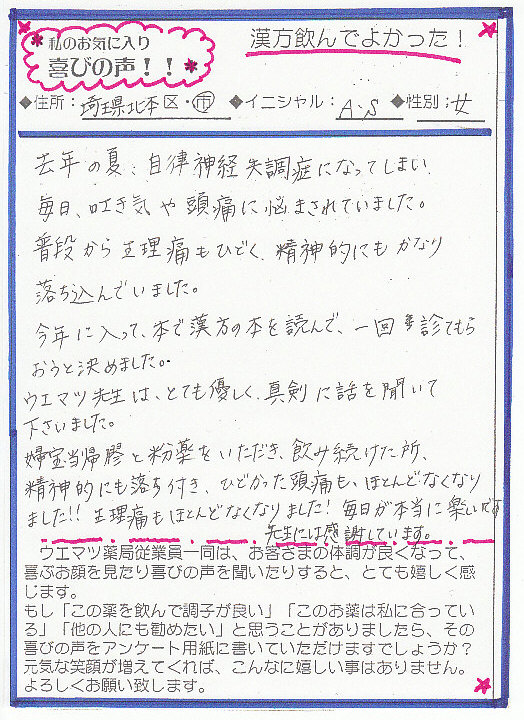 私のお気に入り
喜びの声！！
漢方飲んでよかった！
◆住所：埼玉県北本区・市 ◆イニシャル：A.S ◆性別：女
去年の夏、自律神経失調症になってしまい、
毎日、吐き気や頭痛に悩まされていました。
普段から生理痛もひどく、精神的にもかなり
落ち込んでいました。
今年に入って、本で漢方の本を読んで、一回診てもら
おうと決めました。
ウエマツ先生は、とても優しく、真剣に話を聞いて
下さいました。
婦宝当帰膠と粉薬をいただき、飲み続けた所、
精神的にも落ち付き、ひどかった頭痛も、ほとんどなくなり
ました!! 生理痛もほとんどなくなりました！毎日が本当に楽しいです
先生には感謝しています。
ウエマツ薬局従業員一同は、お客さまの体調が良くなって、
喜ぶお顔を見たり喜びの声を聞いたりすると、とても嬉しく感
じます。
もし「この薬を飲んで調子が良い」「このお薬は私に合ってい
る」「他の人にも勧めたい」と思うことがありましたら、その
喜びの声をアンケート用紙に書いていただけますでしょうか？
元気な笑顔が増えてくれば、こんなに嬉しい事はありません。
よろしくお願い致します。